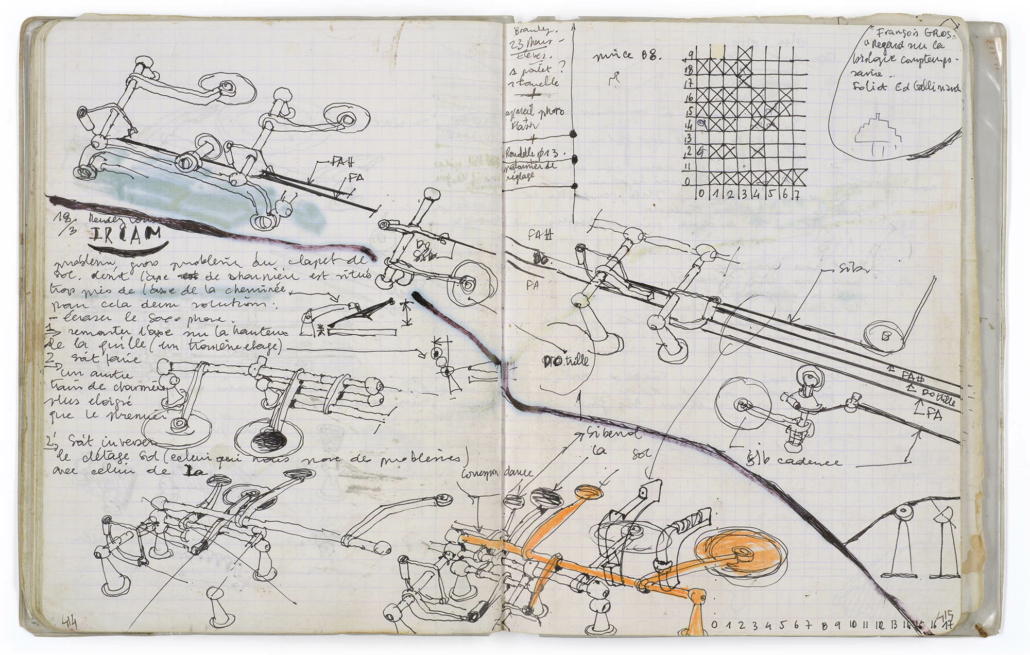 18/3 Rendez vous
IRCAM
problème gros problème du clapet de
sol. dont l'axe de charnière est situé
trop près de l'axe de la cheminée
pour cela deux solutions.
- écraser le Saxophone.
1) remonter l'axe sur la hauteur
de la quille (un troisième étage)
2 soit faire
un autre
train de charnière
plus éloigné
que le premier
2' soit inverser
le clétage sol (celui qui nous pose de problèmes)
avec celui de La
FAH
FA
Do
Correspondance
414
23 Mars
appareil photo
+
flash
+
Rondelle φ13.
réglage
pièce 08.
9
18
17
16
15
14
13
2
11
0
0 1 2 3 4 5 6 7
François GROS.
"Regard sur la
biologie contempo-
raine"
Folio Ed Gallimard
FAH
Do
FA
Sib
B
FAH
Do
FA
Sibémol
La
Sol
sib cadence
415
0 1 2 3 4 5 6 7 8 9 10 11 12 13 14 15 16 17